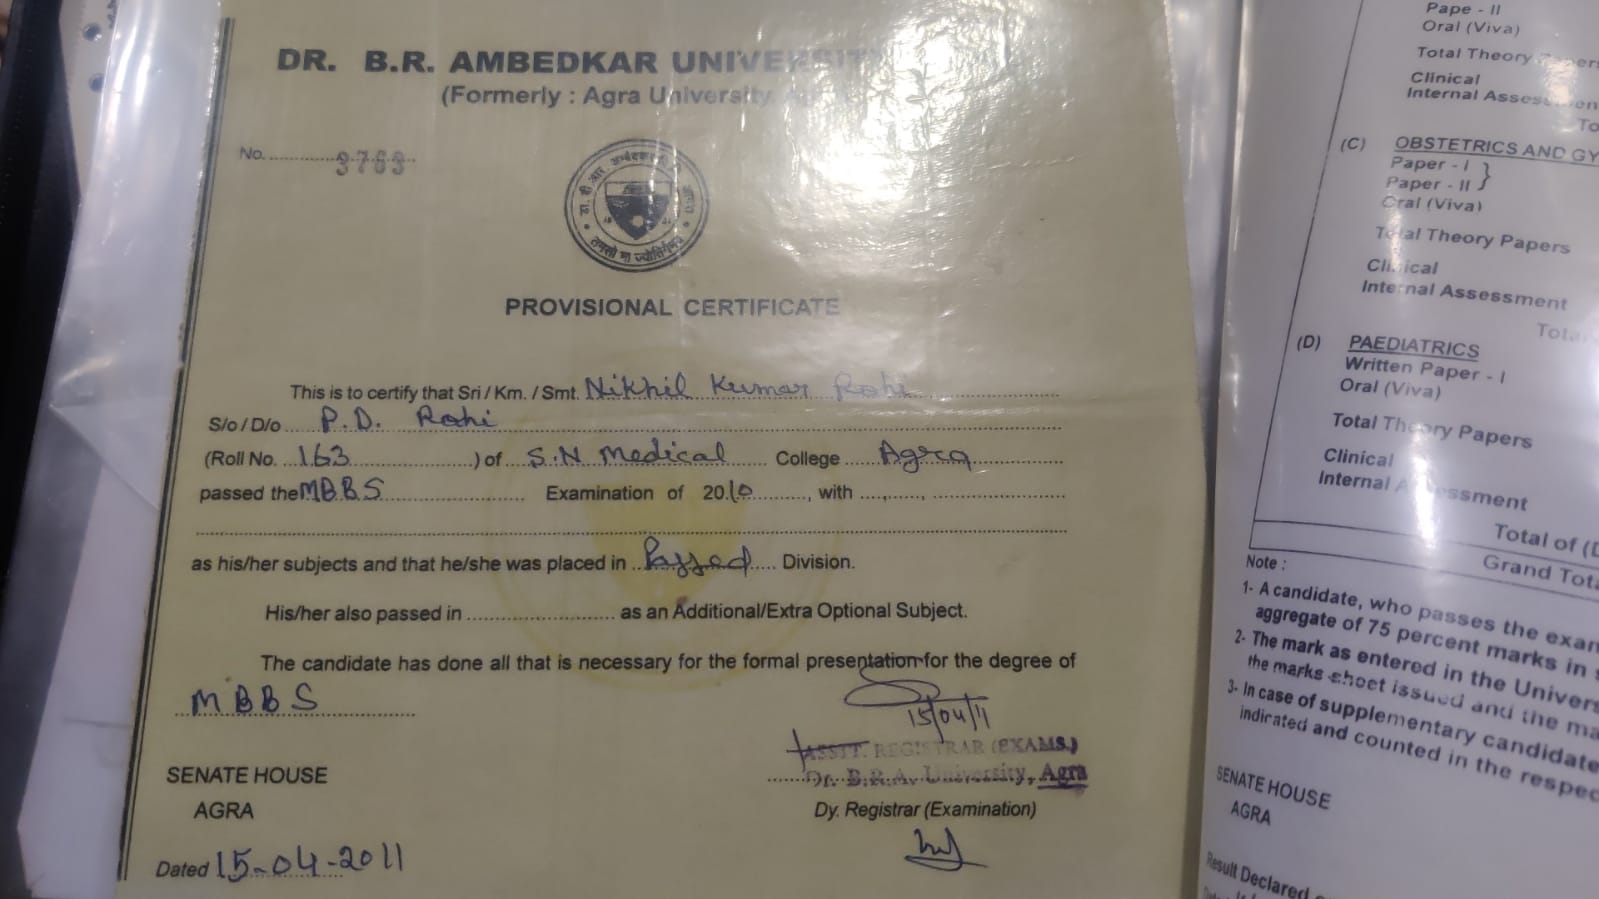 DR. B.R. AMBEDKAR UNIVERSITY
(Formerly : Agra University,
No. 3763
तमसो मा ज्योतिर्गमय
PROVISIONAL CERTIFICATE
This is to certify that Sri / Km. / Smt. Nikhil Kumar Rohi
S/o / D/o P.D. Rohi
(Roll No. 163 ) of S.N Medical College Agra
passed the MBBS Examination of 2010, with
as his/her subjects and that he/she was placed in Passed Division.
His/her also passed in as an Additional/Extra Optional Subject.
The candidate has done all that is necessary for the formal presentation for the degree of
MBBS
15/04/11
ASSTT. REGISTRAR (EXAMS.)
Dr. B.R.A. University, Agra
SENATE HOUSE
AGRA
Dy. Registrar (Examination)
Dated 15-04-2011
Pape - II
Oral (Viva)
Total Theory
Clinical
Internal
(C) OBSTETRICS AND GY
Paper - I
Paper - II
Oral (Viva)
Total Theory Papers
Clinical
Internal Assessment
Total
(D) PAEDIATRICS
Written Paper - I
Oral (Viva)
Total Theory Papers
Clinical
Internal Assessment
Total of (D
Grand Tota
Note :
1- A candidate, who passes the exam
aggregate of 75 percent marks in
2- The mark as entered in the Univers
the marks sheet issued and the ma
3- In case of supplementary candidate
indicated and counted in the respec
SENATE HOUSE
AGRA
Result Declared